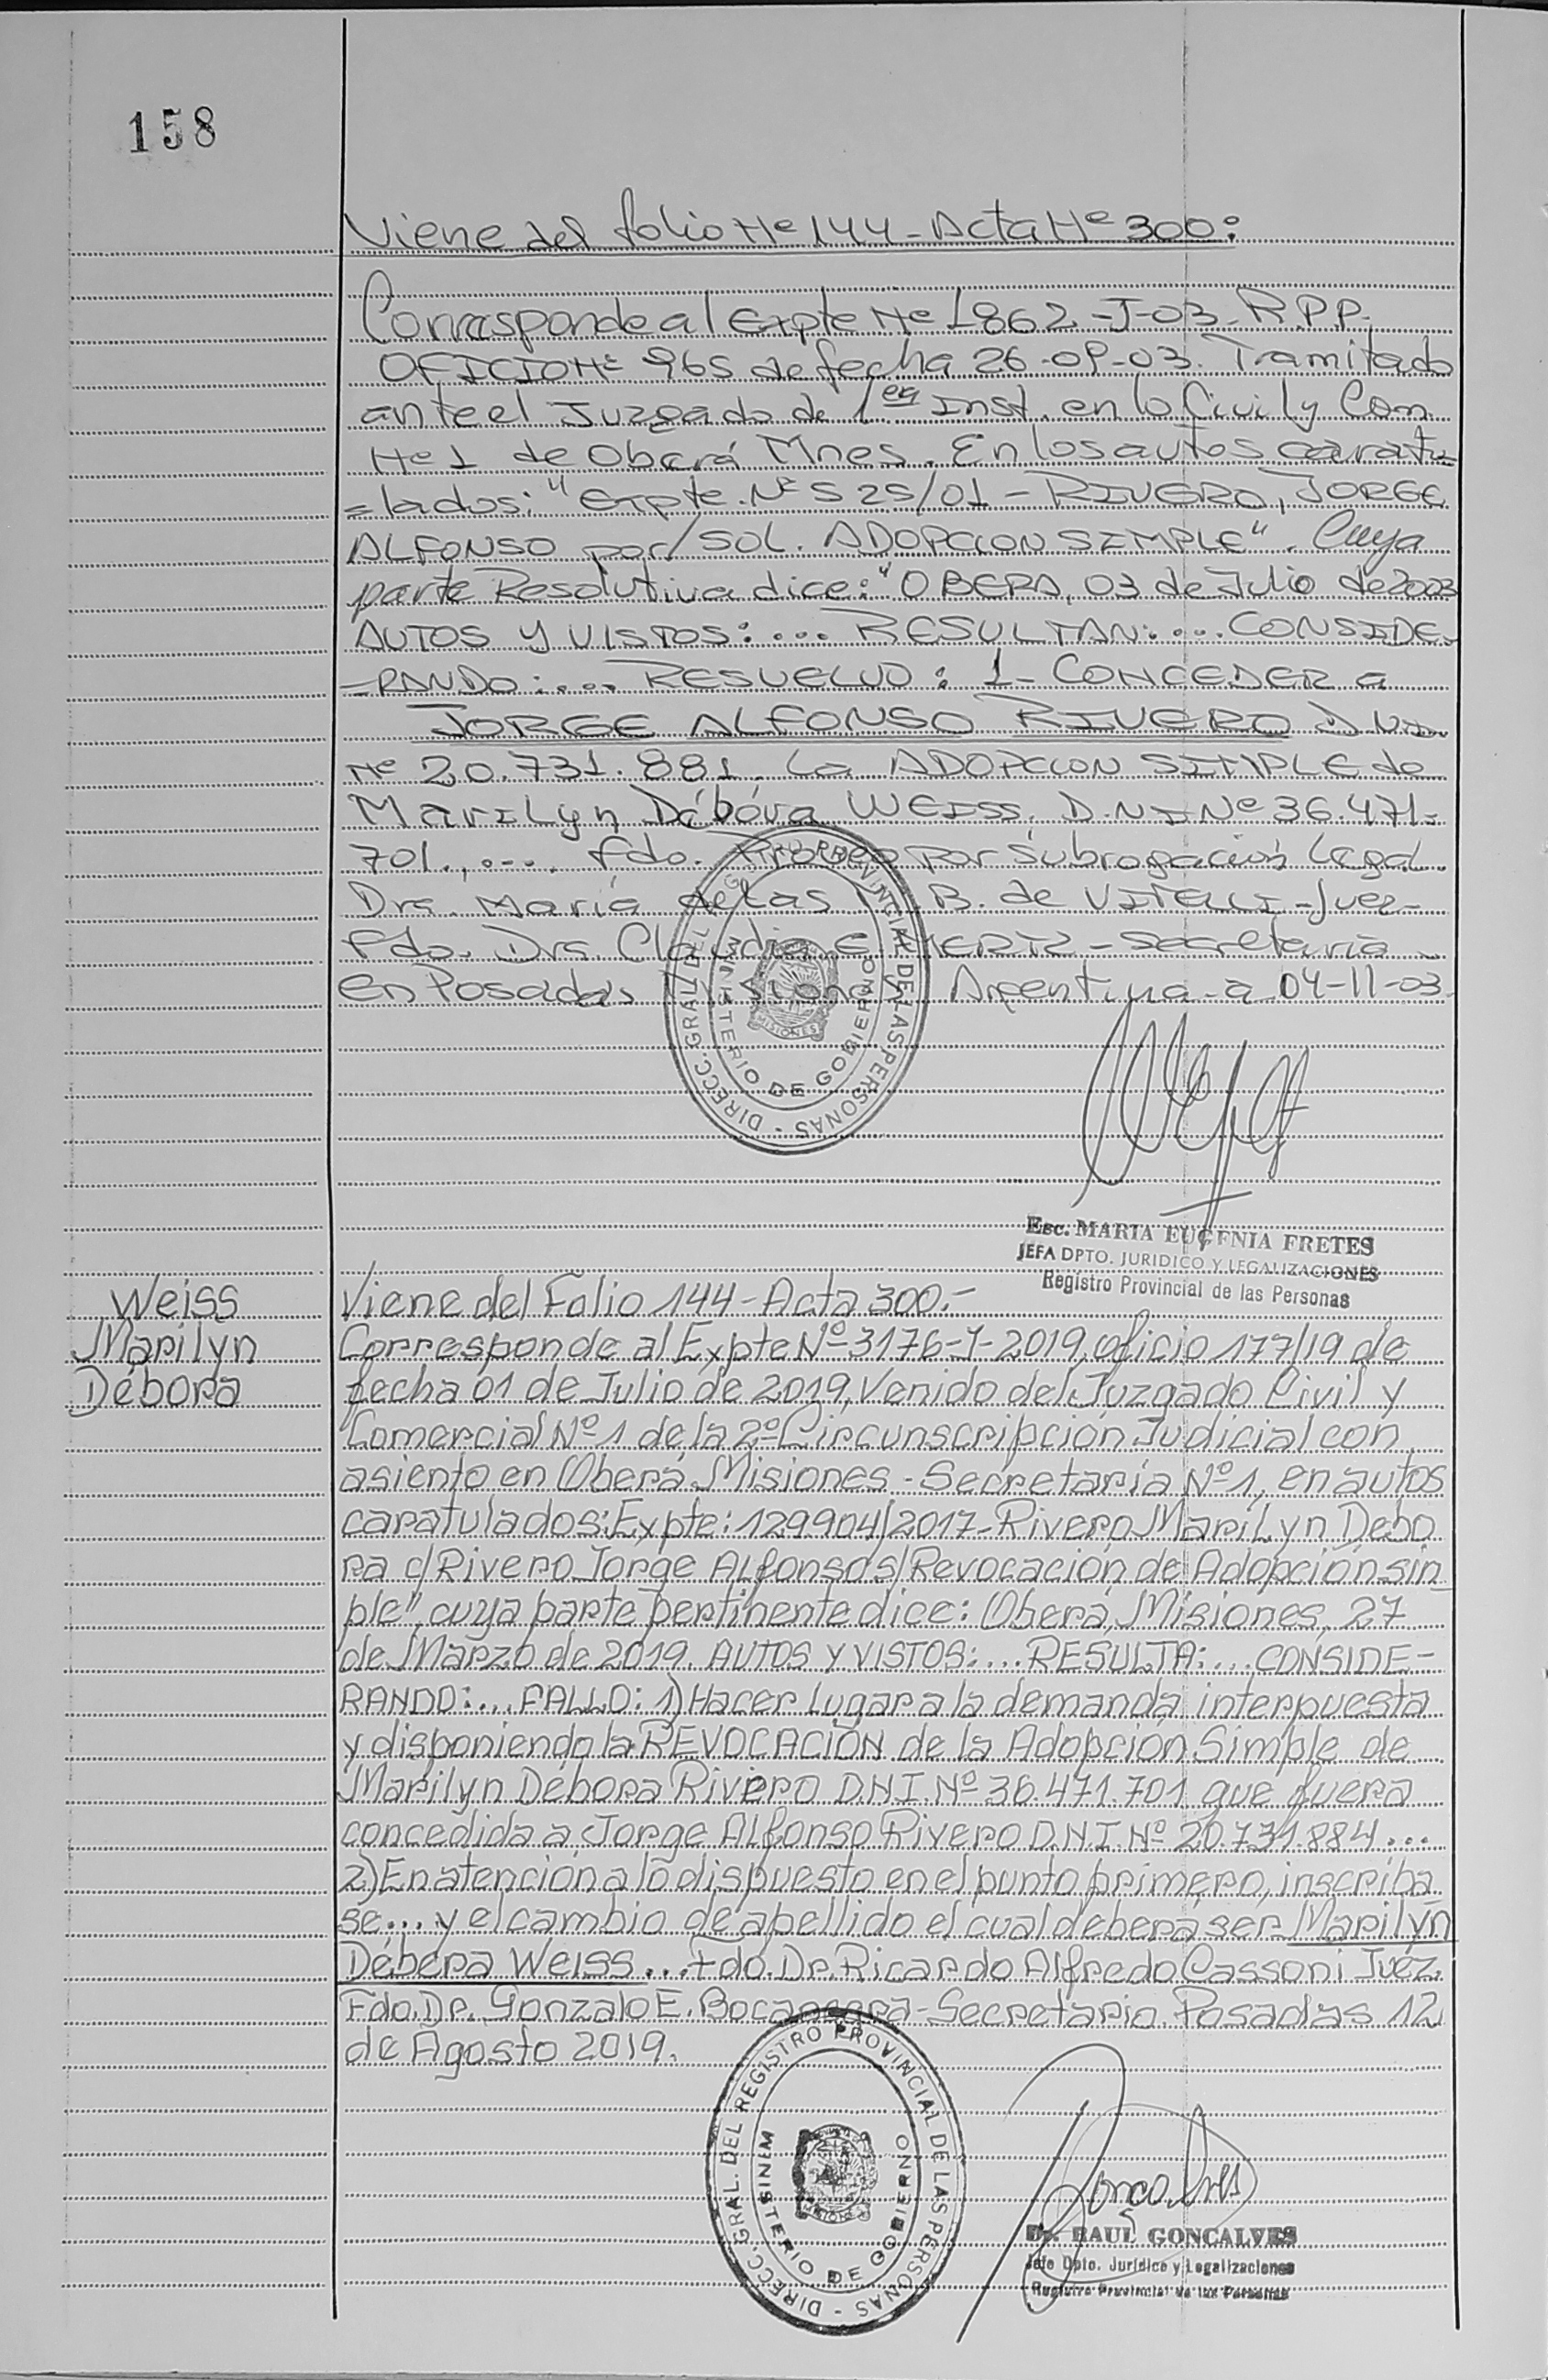 158
Viene del folio Nº 144 - Acta Nº 300:
Corresponde al Expte Nº 1862-J-03-R.P.P.
OFICIO Nº 965 de fecha 26-09-03. Tramitado
ante el Juzgado de 1era Inst. en lo Civil y Com.
Nº 1 de Oberá Mnes. En los autos caratu=
=lados: "Expte. Nº 525/01 - RIVERO, JORGE
ALFONSO por/ SOL. ADOPCION SIMPLE". Cuya
parte Resolutiva dice: "OBERA, 03 de Julio de 2003
AUTOS Y VISTOS: ... RESULTAN: ... CONSIDE-
-RANDO: ... RESUELVO: 1- CONCEDER a
JORGE ALFONSO RIVERO D.N.I.
Nº 20.731.881. La ADOPCION SIMPLE de
Marilyn Débóra WEISS. D.N.I Nº 36.471-
701., .... fdo. Proveo por Subrogación Legal
Dra. María de las B. de VITELLI - Juez -
Fdo. Dra. Claudia E. - Secretaria -
en Posadas Misiones Argentina - a 04-11-03.
DIRECC. GRAL. DEL REGISTRO PROVINCIAL DE LAS PERSONAS -
MINISTERIO DE GOBIERNO
MISIONES
Esc. MARIA EUGENIA FRETES
JEFA DPTO. JURIDICO Y LEGALIZACIONES
Registro Provincial de las Personas
Weiss
Marilyn
Débora
Viene del Folio 144 - Acta 300.-
Corresponde al Expte Nº 3176-J-2019, oficio 177/19 de
fecha 01 de Julio de 2019, Venido del Juzgado Civil y
Comercial Nº 1 de la 2º Circunscripción Judicial con
asiento en Oberá, Misiones - Secretaría Nº 1, en autos
caratulados: Expte: 129904/2017 - Rivero Marilyn Debo
ra c/ Rivero Jorge Alfonso s/ Revocación de Adopción sim
ple", cuya parte pertinente dice: Oberá, Misiones, 27
de Marzo de 2019. AUTOS Y VISTOS: ... RESULTA: ... CONSIDE-
RANDO: ... FALLO: 1) Hacer Lugar a la demanda interpuesta
y disponiendo la REVOCACIÓN de la Adopción Simple de
Marilyn Débora Rivero D.N.I. Nº 36.471.701 que fuera
concedida a Jorge Alfonso Rivero D.N.I. Nº 20.731.884 ...
2) En atención a lo dispuesto en el punto primero, inscriba
se ... y el cambio de apellido el cual deberá ser Marilyn
Débora Weiss ... Fdo. Dr. Ricardo Alfredo Cassoni Juez.
Fdo. Dr. Gonzalo E. Bocanegra - Secretario. Posadas 12
de Agosto 2019.
DIRECC. GRAL. DEL REGISTRO PROVINCIAL DE LAS PERSONAS -
MINISTERIO DE GOBIERNO
MISIONES
Dr. RAUL GONCALVES
Jefe Dpto. Jurídico y Legalizaciones
Registro Provincial de las Personas